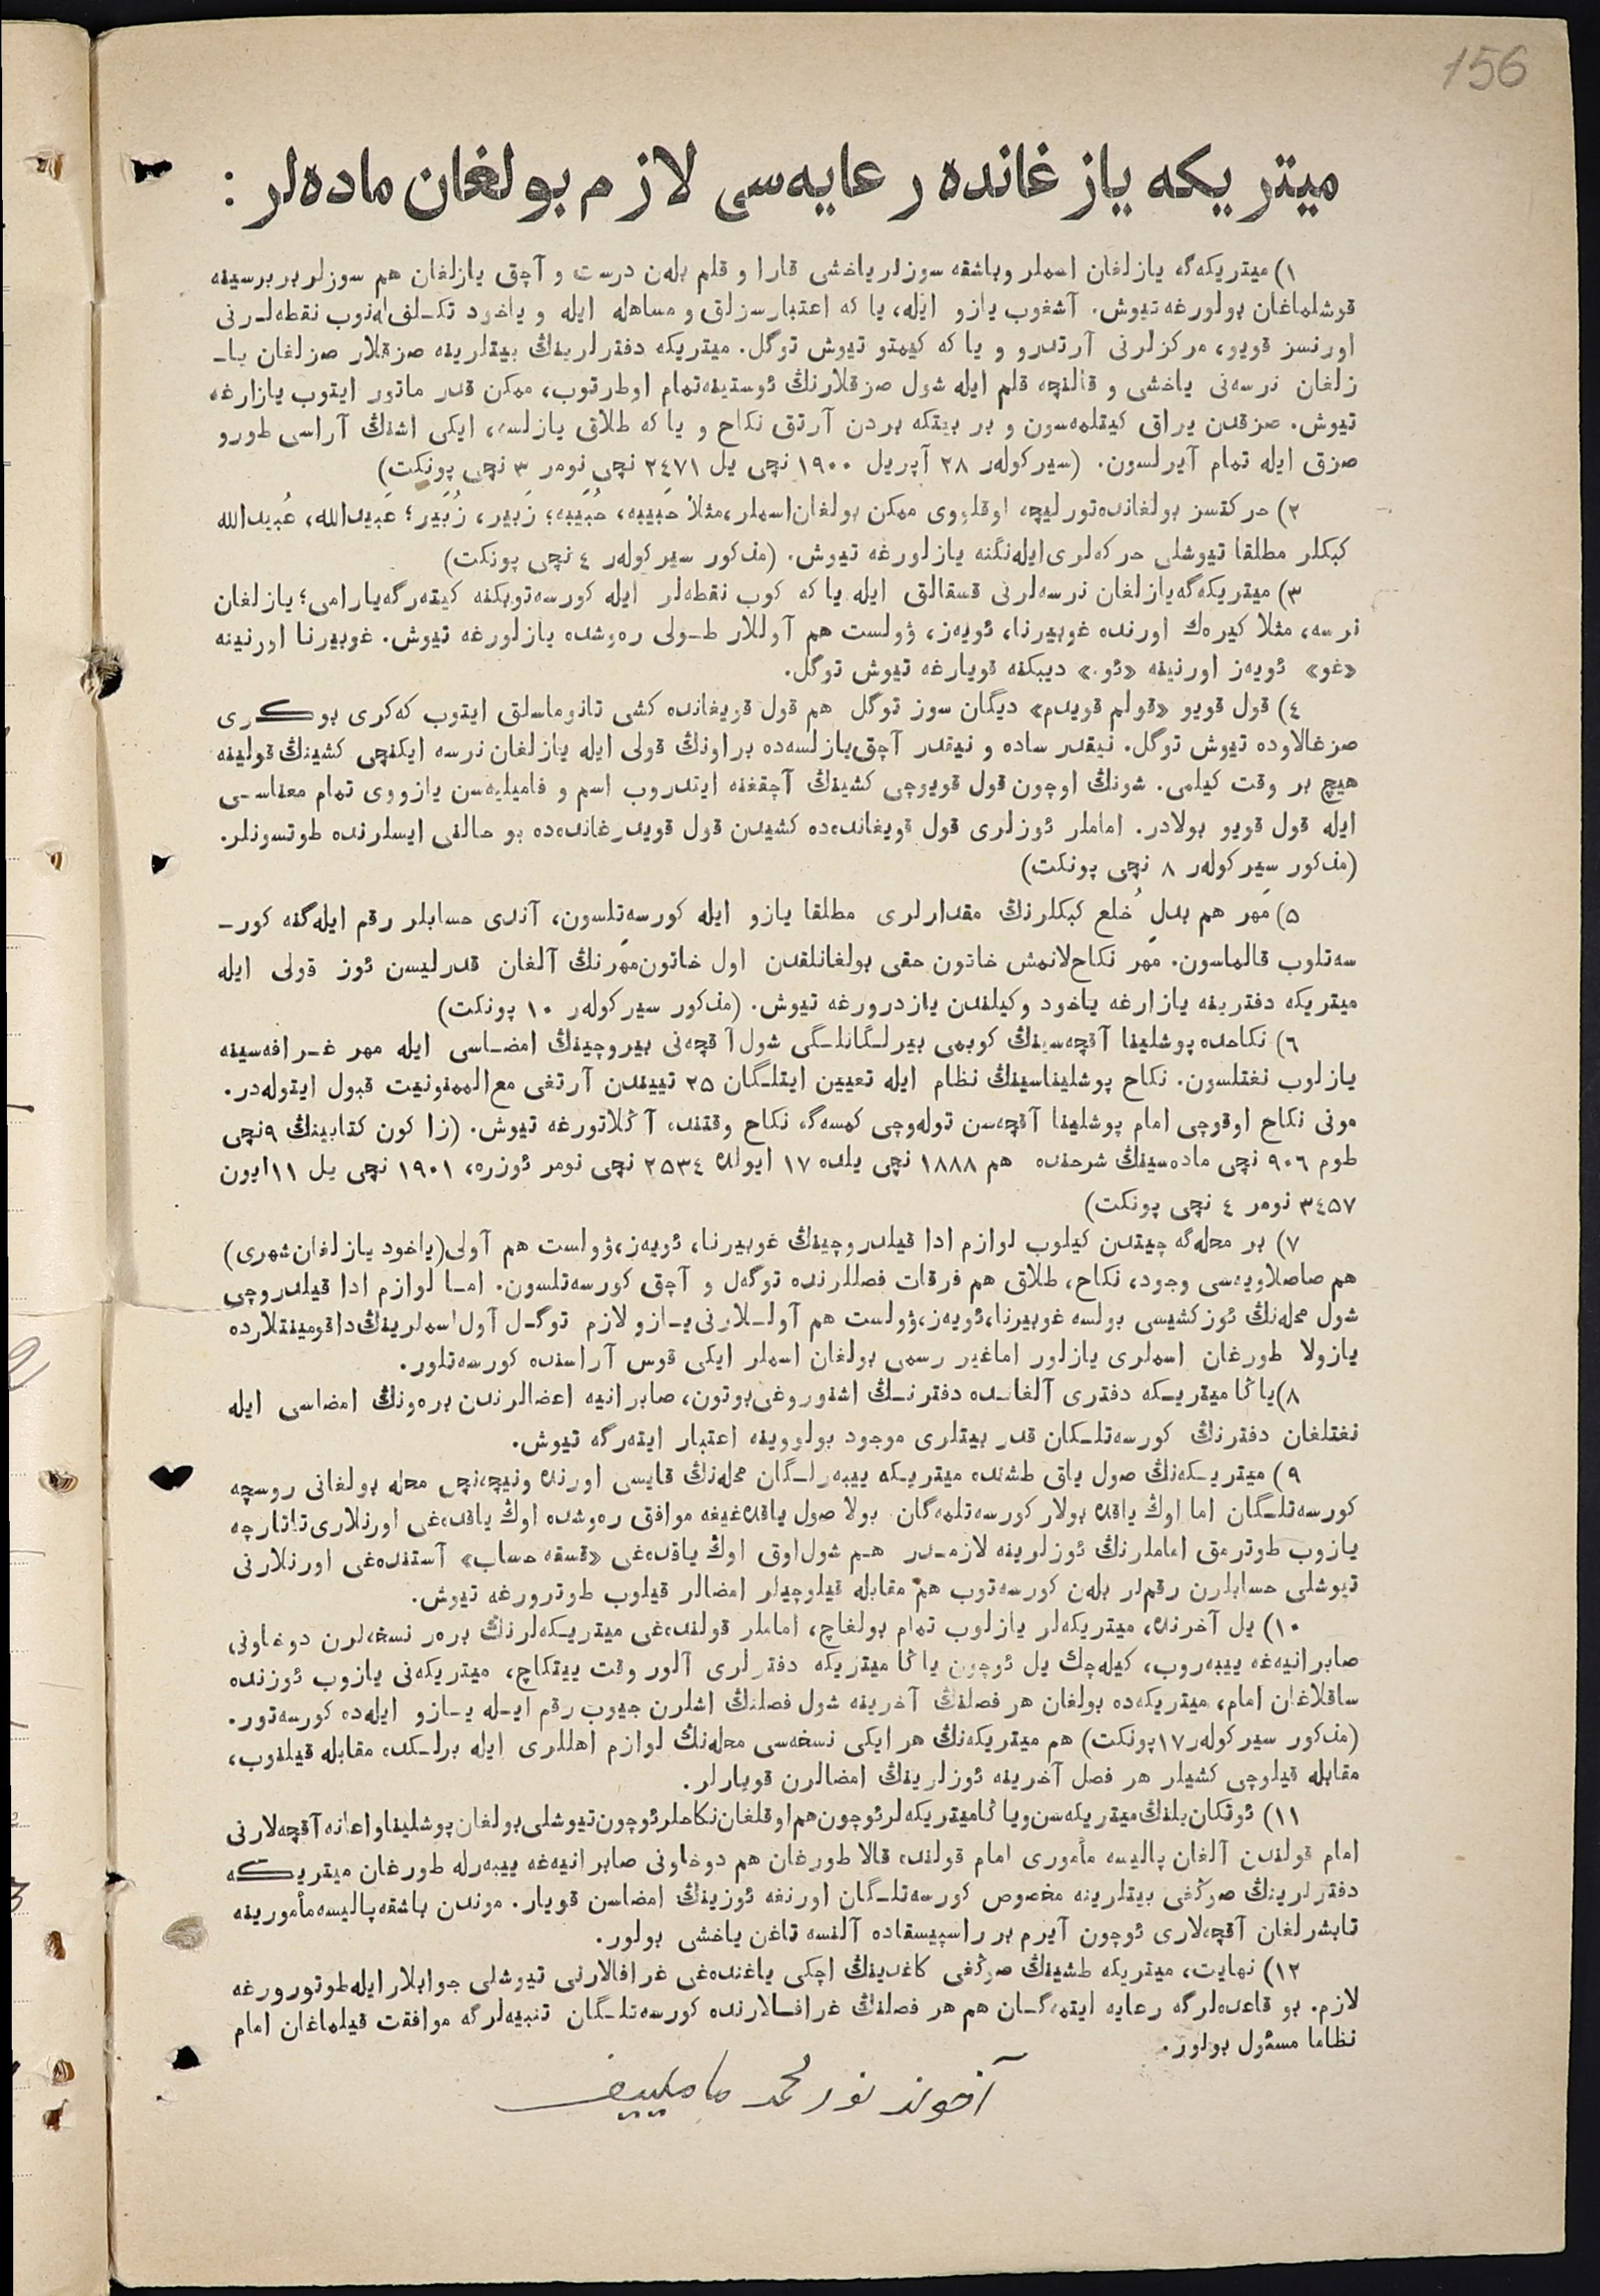 156
میتریکه یازغانده رعایه‌سی لازم بولغان ماده‌لر :
۱) میتریکه‌گه یازلغان اسملر وباشقه سوزلر یاخشی قارا و قلم بله‌ن درست و آچق یازلغان هم سوزلر بربرسینه
قوشلماغان بولورغه تیوش. آشغوب یازو ایله، یا که اعتبارسزلق و مساهله ایله و یاخود تکـلف له‌نوب نقطه‌لـرنی
اورنسز قویو، مرکزلرنی آرتدرو و یا که کیمتو تیوش توگل. میتریکه دفترلرینڭ بیتلرینه صزقلار صزلغان یا-
زلغان نرسه‌نی یاخشی و قالنچه قلم ایله شول صزقلارنڭ ئوستینه‌تمام اوطرتوب، ممکن قدر ماتور ایتوب یازارغه
تیوش. صزقدن یراق کیتلمه‌سون و بر بیتکه بردن آرتق نکاح و یا که طلاق یازلسه، ایکی اشنڭ آراسی طورو
صزق ایله تمام آیرلسون. (سیرکوله‌ر ۲۸ آپریل ۱۹۰۰ نچی یل ۲٤۷۱ نچی نومر ۳ نچی پونکت)
۲) حرکتسز بولغانده‌تورلیچه اوقلووی ممکن بولغان‌اسملر،مثلا حَبیبه، حُبَیبه؛ زَبیر، زُبَیر؛ عَبیدالله، عُبیدالله
کبکلر مطلقا تیوشلی حرکه‌لری‌ایله‌نگنه یازلورغه تیوش. (مذکور سیرکوله‌ر ٤ نچی پونکت)
۳) میتریکه‌گه‌یازلغان نرسه‌لرنی قسقالق ایله یا که کوب نقطه‌لر ایله کورسه‌توبکنه کیته‌رگه‌یارامی؛ یازلغان
نرسه، مثلا کیره‌ك اورنده غوبیرنا، ئویه‌ز، ۋولست هم آوللار طـولی ره‌وشده یازلورغه تیوش. غوبیرنا اورنینه
«غو» ئویه‌ز اورنینه «ئو.» دیبکنه قویارغه تیوش توگل.
٤) قول قویو «قولم قویدم» دیگان سوز توگل هم قول قویغانده کشی تانوماسلق ایتوب که‌کری بوکـری
صزغالاوده تیوش توگل. نیقدر ساده و نیقدر آچق‌یازلسه‌ده براونڭ قولی ایله یازلغان نرسه ایکنچی کشینڭ قولینه
هیچ بر وقت کیلمی. شونڭ اوچون قول قویوچی کشینڭ آچقغنه ایتدروب اسم و فامیلیه‌سن یازووی تمام معناسـی
ایله قول قویو بولادر. اماملر ئوزلری قول قویغانده‌ده کشیدن قول قویدرغانده‌ده بو حالنی ایسلرنده طوتسونلر.
(مذکور سیرکوله‌ر ۸ نچی پونکت)
۵) مَهر هم بدل خُلع کبکلرنڭ مقدارلری مطلقا یازو ایله کورسه‌تلسون، آندی حسابلر رقم ایله‌گنه کور-
سه‌تلوب قالماسون. مَهر نکاح‌لانمش خاتون حقی بولغانلقدن اول خاتون‌مَهرنڭ آلغان قدرلیسن ئوز قولی ایله
میتریکه دفترینه یازارغه یاخود وکیلندن یازدرورغه تیوش. (مذکور سیرکوله‌ر ۱۰ پونکت)
٦) نکاحده پوشلینا آقچه‌سینڭ کوبمی بیرلـگانلـگی شول‌آقچه‌نی بیروچینڭ امضـاسی ایله مهر غـرافه‌سینه
یازلوب نغتلسون. نکاح پوشلیناسینڭ نظام ایله تعیین ایتلـگان ۲۵ تییندن آرتغی مع‌الممنونیت قبول ایتوله‌در.
مونی نکاح اوقوچی امام پوشلینا آقچه‌سن توله‌وچی کمسه‌گه نکاح وقتنده آڭلاتورغه تیوش. (زاکون کتابینڭ ۹نچی
طوم ۹۰٦ نچی ماده‌سینڭ شرحنده هم ۱۸۸۸ نچی یلده ۱۷ ایولده ۲۵۳٤ نچی نومر ئوزره، ۱۹۰۱ نچی یل ۱۱ایون
۳٤۵۷ نومر ٤ نچی پونکت)
۷) بر محله‌گه چیتدن کیلوب لوازم ادا قیلدروچینڭ غوبیرنا، ئویه‌ز،ۋولست هم آولی(یاخود یازلغان‌شهری)
هم صاصلاویه‌سی وجود، نکاح، طلاق هم فرقات فصللرنده توگه‌ل و آچق کورسه‌تلسون. امـا لوازم ادا قیلدروچی
شول محله‌نڭ ئوزکشیسی بولسه غوبیرنا،ئویه‌ز،ۋولست هم آولـلارنی‌یـازو لازم توگـل آول‌اسملرینڭ‌داقومینتلارده
یازولا طورغان اسملری یازلور اماغیر رسمی بولغان اسملر ایکی قوس آراسنده کورسه‌تلور.
۸)یاڭا میتریـکه دفتری آلغانـده دفترنـڭ اشنوروغی‌بوتون، صابرانیه اعضالرندن بره‌ونڭ امضاسی ایله
نغتلغان دفترنڭ کورسه‌تلـکان قدر بیتلری موجود بولووینه اعتبار ایته‌رگه تیوش.
۹) میتریـکه‌نڭ صول یاق طشنده میتریـکه ییبه‌رلـگان محله‌نڭ قایسی اورنده ونیچه‌نچی محله بولغانی روسچه
کورسه‌تلـگان اما اوڭ یاقده بولار کورسه‌تلمه‌گان بولا صول یاقده‌غیغه موافق ره‌وشده اوڭ یاقده‌غی اورنلاری‌تاتارچه
یازوب طوترمق اماملرنڭ ئوزلرینه لازمـدر هـم شول‌اوق اوڭ یاقده‌غی «قسقه حساب» آستنده‌غی اورنلارنی
تیوشلی حسابلرن رقم‌لر بله‌ن کورسه‌توب هم مقابله قیلوچیلر امضالر قیلوب طوترورغه تیوش.
۱۰) یل آخرنده، میتریکه‌لر یازلوب تمام بولغاچ، اماملر قولنده‌غی میتریـکه‌لرنڭ بره‌ر نسخه‌لرن دوخاونی
صابرانیه‌غه ییبه‌روب، کیله‌چك یل ئوچون یاڭا میتریکه دفترلری آلور وقت ییتکاچ، میتریکه‌نی یازوب ئوزنده
ساقلاغان امام، میتریکه‌ده بولغان هر فصلنڭ آخرینه شول فصلنڭ اشلرن جیوب رقم ایـله یـازو ایله‌ده کورسه‌تور.
(مذکور سیرکوله‌ر۱۷پونکت) هم میتریکه‌نڭ هر ایکی نسخه‌سی محله‌نڭ لوازم اهللری ایله برلـکده مقابله قیلنوب،
مقابله قیلوچی کشیلر هر فصل آخرینه ئوزلرینڭ امضالرن قویارلر.
۱۱) ئوتکان‌یلنڭ‌میتریکه‌سن‌ویاڭامیتریکه‌لرئوچون‌هم‌اوقلغان‌نکاحلرئوچون‌تیوشلی‌بولغان‌پوشلیناواعانه‌آقچه‌لارنی
امام قولندن آلغان پالیسه مأموری امام قولنده قالا طورغان هم دوخاونی صابرانیه‌غه ییبه‌رله طورغان میتریـکه
دفترلرینڭ صوڭغی بیتلرینه مخصوص کورسه‌تلـگان اورنغه ئوزینڭ امضاسن قویار. موندن باشقه‌پالیسه‌مأمورینه
تابشرلغان آقچه‌لاری ئوچون آیرم بر راسپیسقاده آلنسه تاغن یاخشی بولور.
۱۲) نهایت، میتریکه طشینڭ صوڭغی کاغدینڭ اچکی یاغنده‌غی غرافالارنی تیوشلی جوابلارایله‌طوتورورغه
لازم. بو قاعده‌لرگه رعایه ایتمه‌گـان هم هر فصلنڭ غرافـالارنده کورسه‌تلـگان تنبیه‌لرگه موافقت قیلماغان امام
نظاما مسئول بولور.
آخوند نور محمد ماملییف